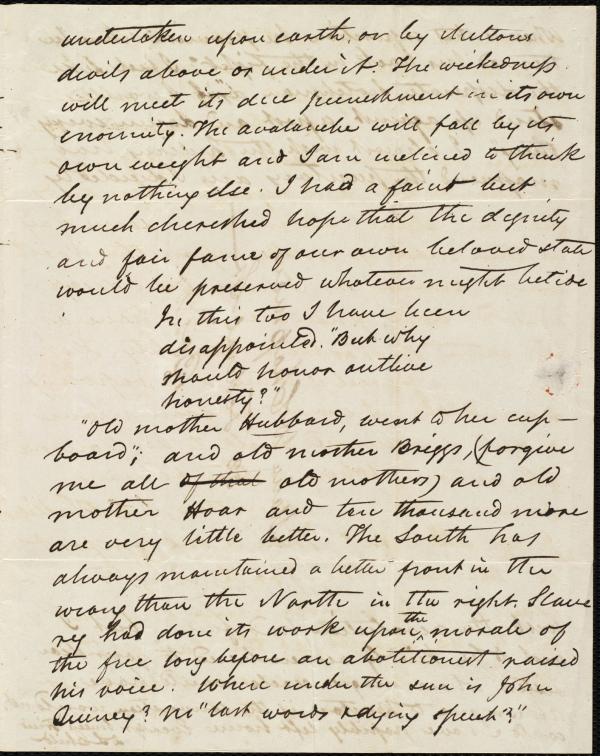 undertaken upon earth, or by Miltons
divils above or under it. The wickedness
will meet its due punishment in its own
enormity. The avalanche will fall by its
own weight and I am inclined to think
by nothing else. I had a faint but
much cherished hope that the dignity
and fair fame of our own beloved state
would be preserved whatever might betide
In this too I have been
disappointed. "But why
should honor outlive
honesty?"
"Old mother Hubbard, went to her cup-
board"; and old mother Briggs, (forgive
me all of that old mothers) and old
mother Hoar and ten thousand more
are very little better. The South has
always maintained a better front in the
wrong than the North in the right. Slave
ry had done its work upon the morale of
the free long before an abolitionist raised
his voice. Where under the sun is John
Quincy? No "last words & dying speech?"